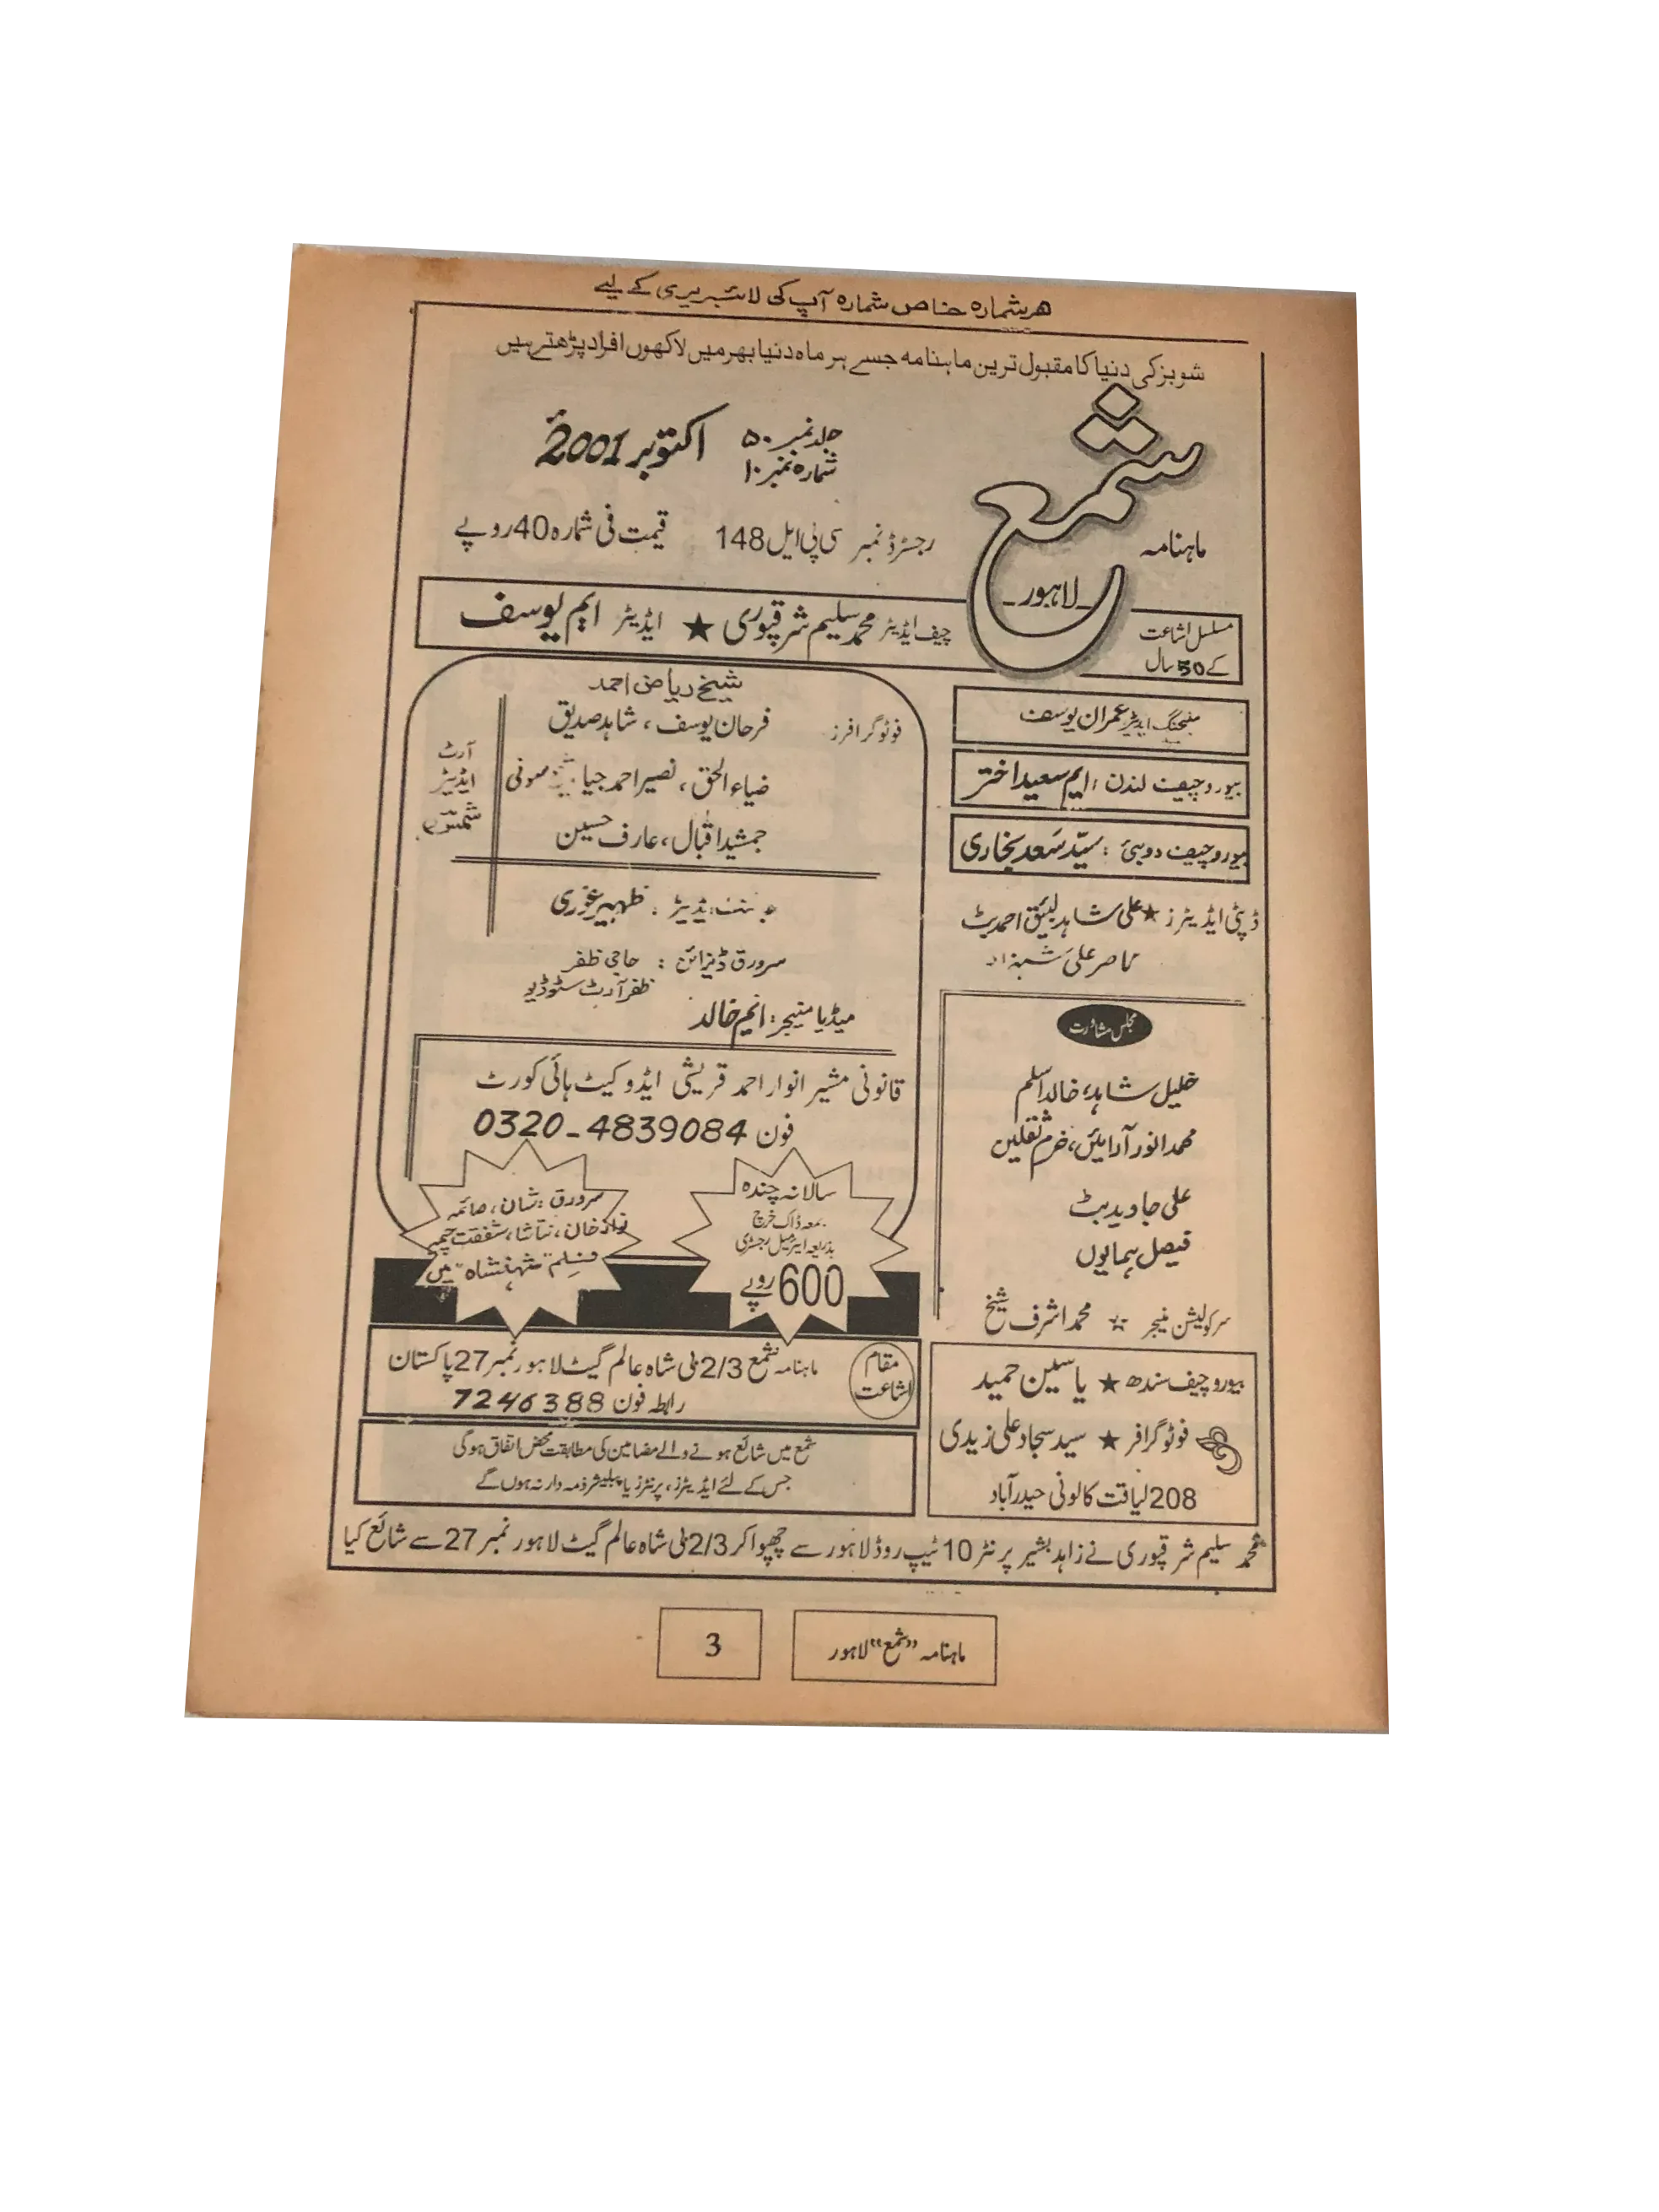 هر شمارہ خاص شمارہ آپ کی لائبریری کے لیے
شوبز کی دنیا کا مقبول ترین ماہنامہ جسے ہر ماہ دنیا بھر میں لاکھوں افراد پڑھتے ہیں
ماہنامہ
شمع
لاہور
جلد نمبر ۵۰
شمارہ نمبر ۱۰
اکتوبر 2001ء
رجسٹرڈ نمبر سی پی ایل 148
قیمت فی شمارہ 40 روپے
مسلسل اشاعت
کے 50 سال
چیف ایڈیٹر محمد سلیم شرقپوری ★ ایڈیٹر ایم یوسف
منیجنگ ایڈیٹر عمران یوسف
بیورو چیف لندن : ایم سعید اختر
بیورو چیف دوبئی : سیّد سَعد بخاری
ڈپٹی ایڈیٹرز ★ علی شاہد لیئق احمد بٹ
ناصر علی شہزاد
مجلس مشاورت
خلیل شاہد، خالد اسلم
محمد انور آرائیں، خرم ثقلین
علی جاوید بٹ
فیصل ہمایوں
سرکولیشن منیجر ☆ محمد اشرف شیخ
بیورو چیف سندھ ★ یاسین حمید
فوٹوگرافر ★ سید سجاد علی زیدی
208 لیاقت کالونی حیدرآباد
شیخ ریاض احمد
فوٹوگرافرز فرحان یوسف، شاہد صدیق
ضیاء الحق، نصیر احمد جیا سونی
جمشید اقبال، عارف حسین
آرٹ
ایڈیٹر
ظہیر غوری
سرورق ڈیزائن : حاجی ظفر
ظفر آرٹ سٹوڈیو
میڈیا منیجر : انجم خالد
قانونی مشیر انوار احمد قریشی ایڈوکیٹ ہائی کورٹ
فون 0320-4839084
سالانہ چندہ
بمعہ ڈاک خرچ
بذریعہ ایئرمیل رجسٹری
600 روپے
سرورق : شان، صائمہ
نواز خان، نتاشا، شفقت چیمہ
فلم "شہنشاہ" میں
مقام
اشاعت
ماہنامہ شمع 2/3 ملی شاہ عالم گیٹ لاہور نمبر 27 پاکستان
رابطہ فون 7246388
شمع میں شائع ہونے والے مضامین کی مطابقت محض اتفاق ہوگی
جس کے لئے ایڈیٹرز، پرنٹرز یا پبلیشر ذمہ دار نہ ہوں گے
محمد سلیم شرقپوری نے زاہد بشیر پرنٹر 10 ٹیپ روڈ لاہور سے چھپوا کر 2/3 ملی شاہ عالم گیٹ لاہور نمبر 27 سے شائع کیا
ماہنامہ "شمع" لاہور
3